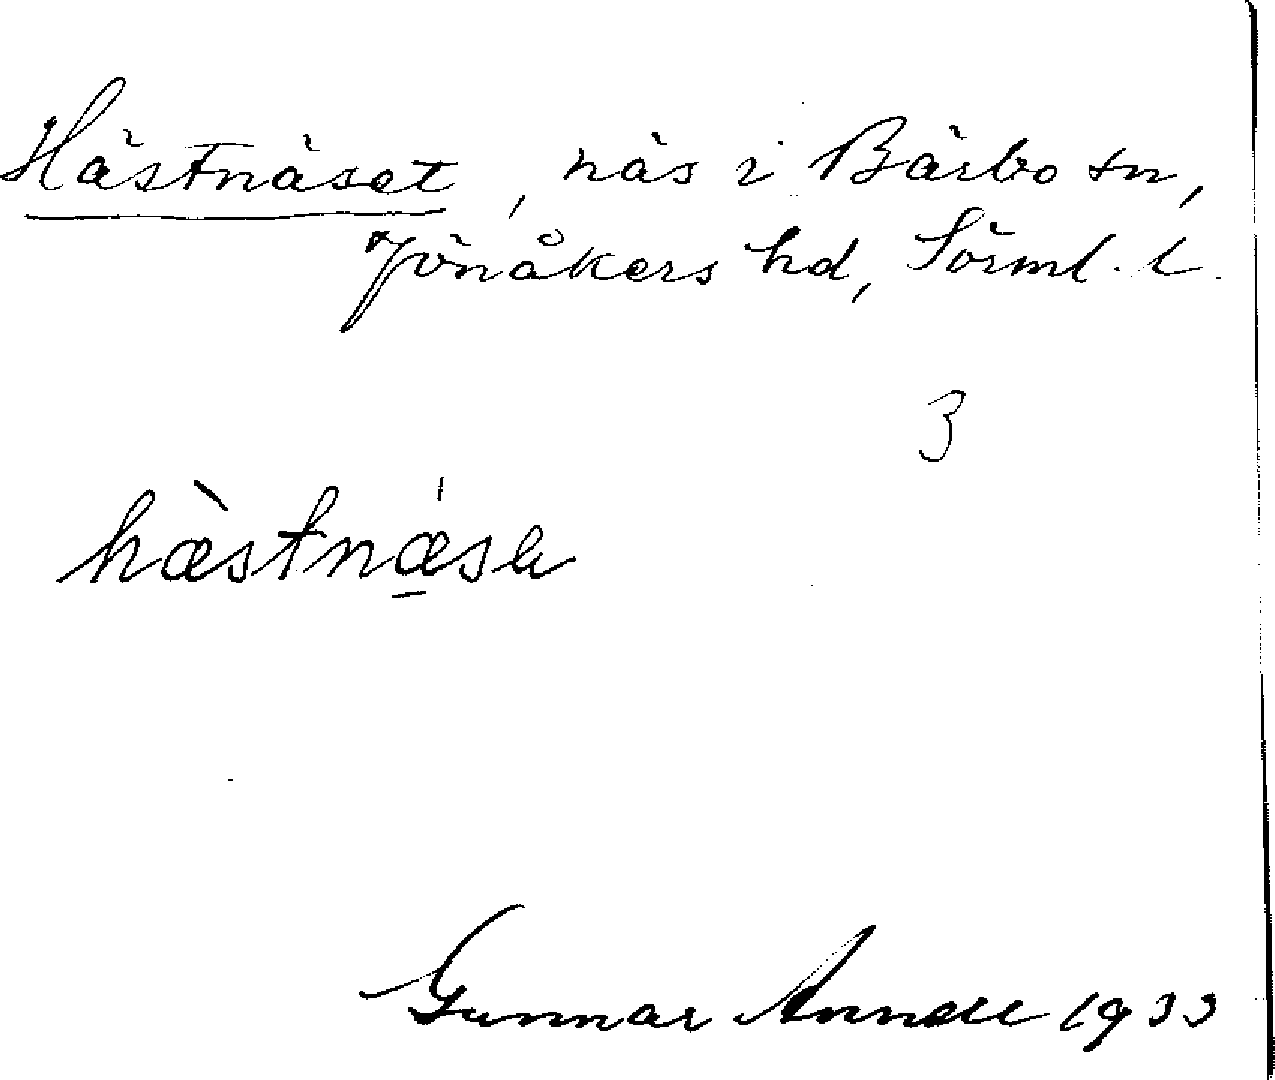 Hästnäset, näs i Bärbo sn,
Jönåkers hd, Sörml. l.
3
hæ̀stnæ̠̍sa
Gunnar Annell 1933